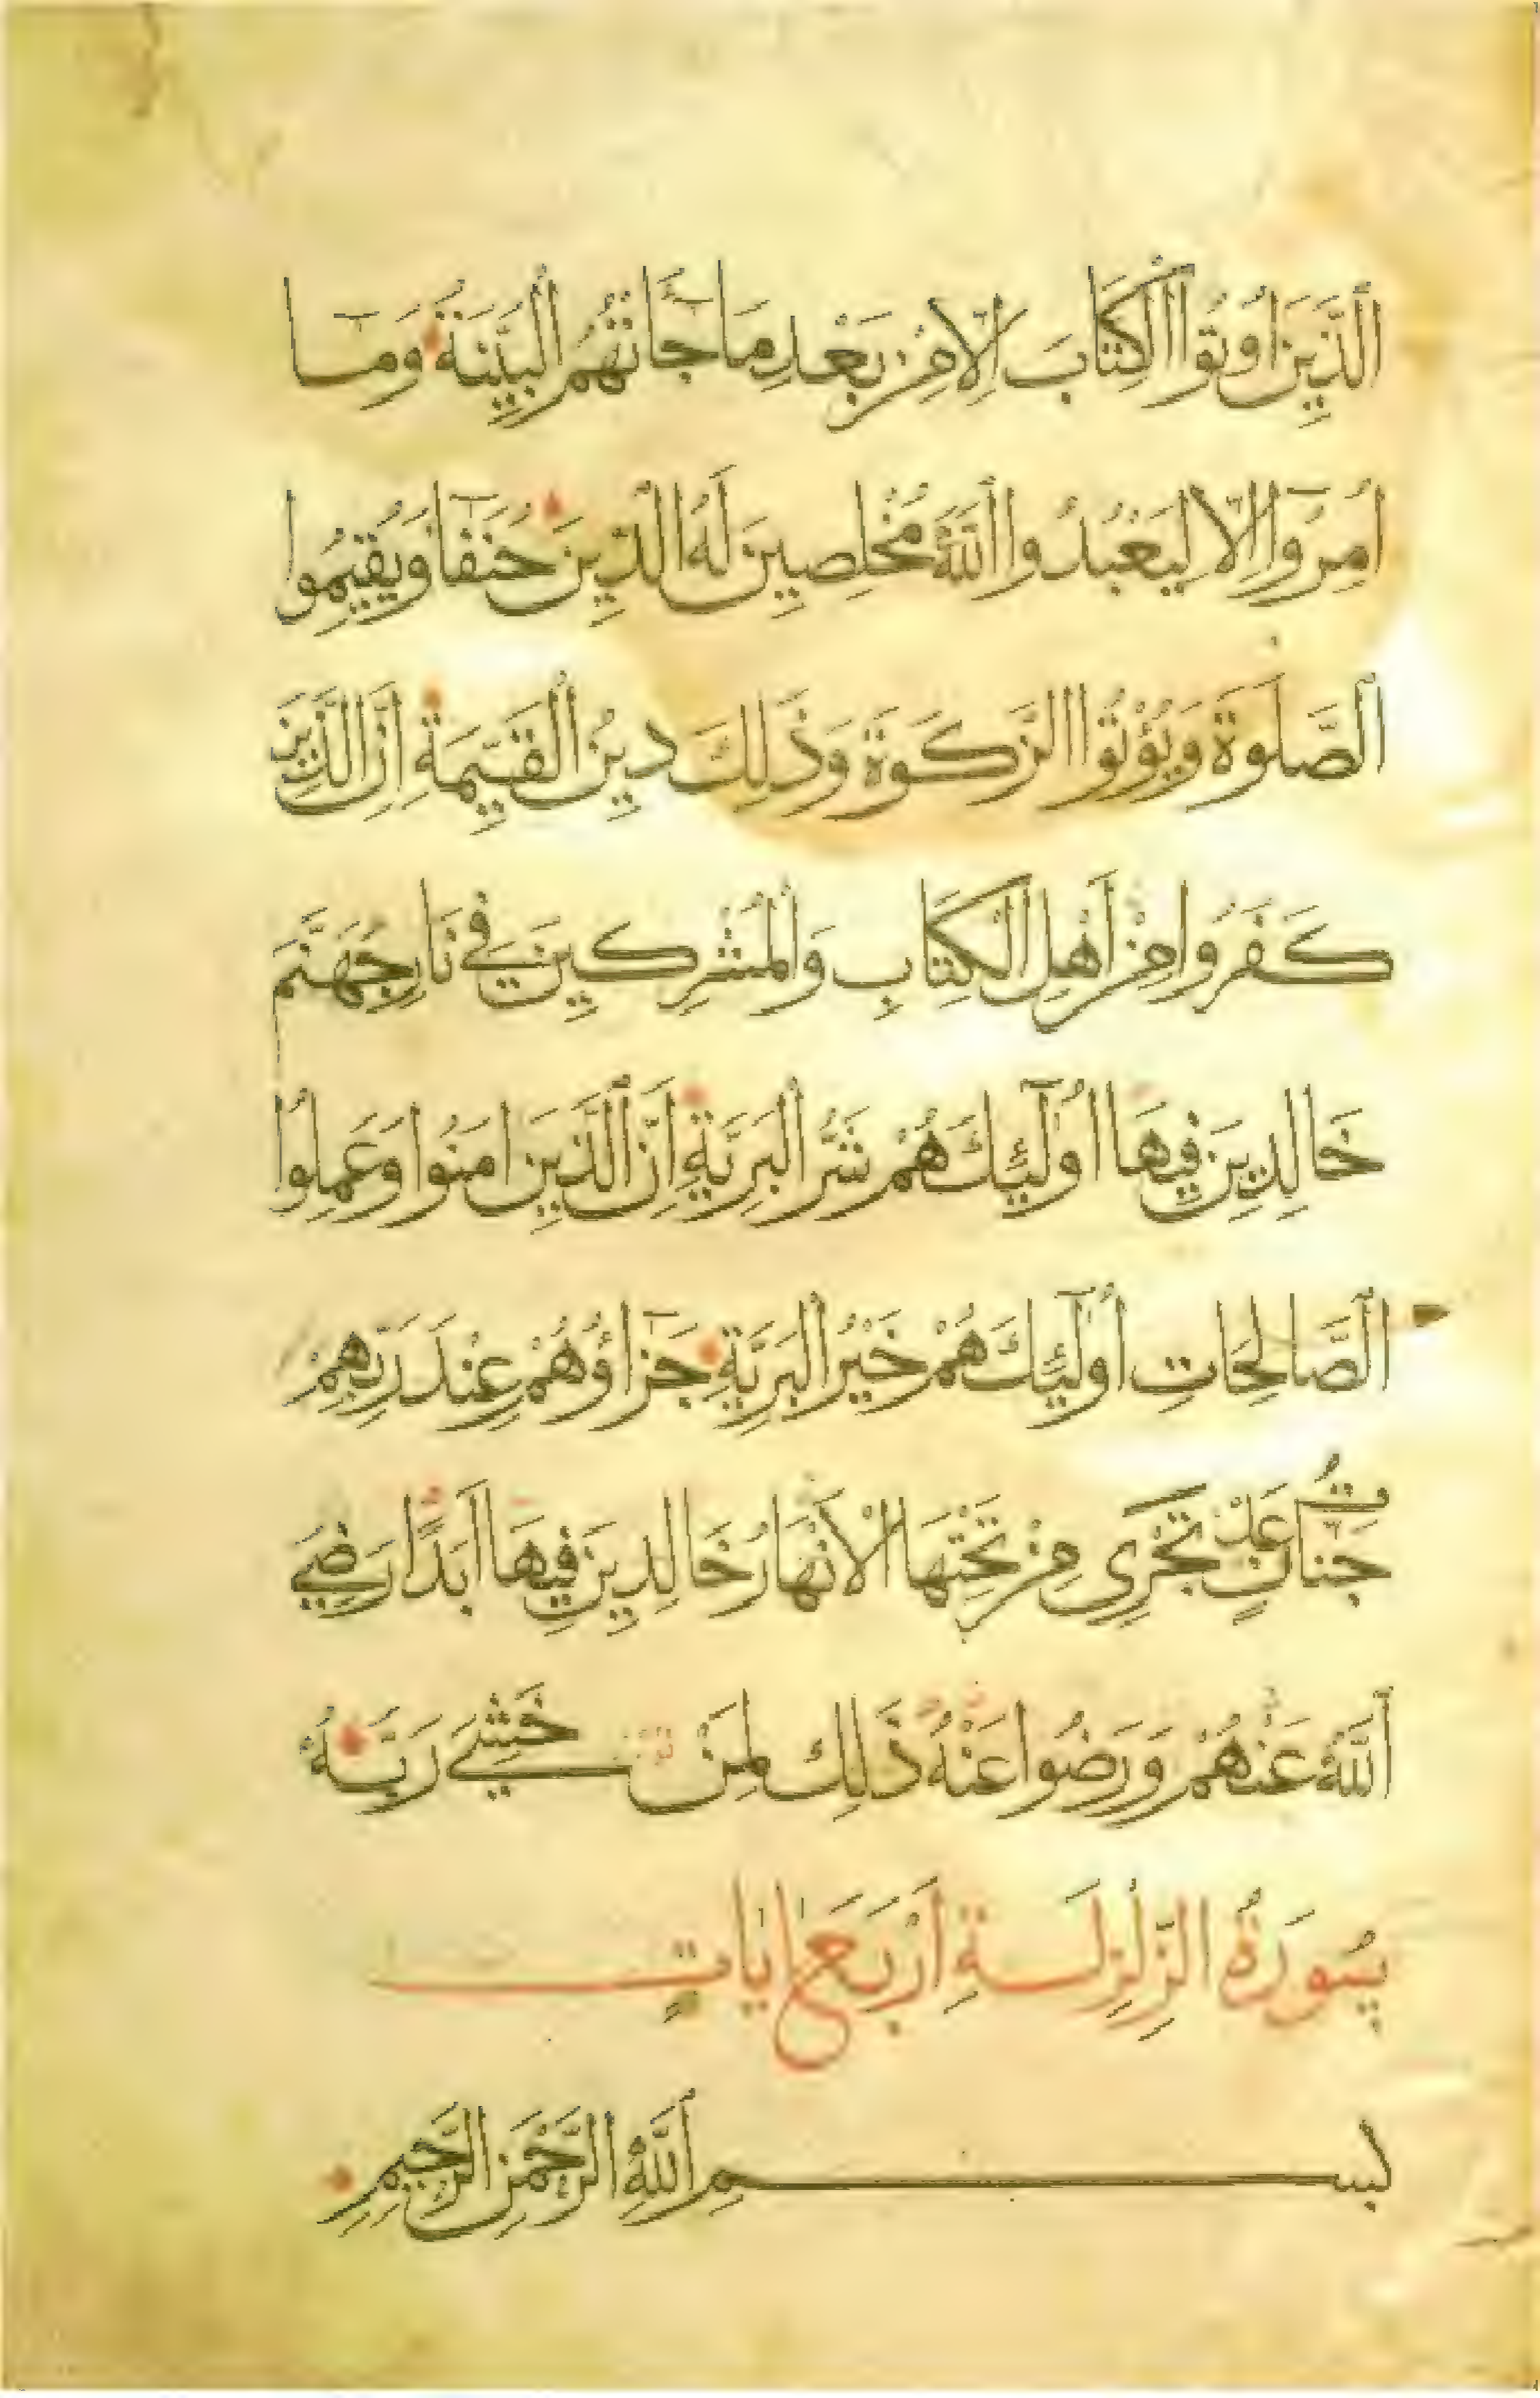 ٱلَّذِينَ اُوتُوا ٱلْكِتَابَ اِلَّا مِنْ بَعْدِ مَا جَآءَتْهُمُ ٱلْبَيِّنَةُ وَمَآ
اُمِرُوٓا اِلَّا لِيَعْبُدُوا ٱللَّهَ مُخْلِصِينَ لَهُ ٱلدِّينَ حُنَفَآءَ وَيُقِيمُوا
ٱلصَّلَوةَ وَيُؤْتُوا ٱلزَّكَوةَ وَذَلِكَ دِينُ ٱلْقَيِّمَةِ اِنَّ ٱلَّذِينَ
كَفَرُوا مِنْ أَهْلِ ٱلْكِتَابِ وَٱلْمُشْرِكِينَ فِي نَارِ جَهَنَّمَ
خَالِدِينَ فِيهَا اُولَٓئِكَ هُمْ شَرُّ ٱلْبَرِيَّةِ اِنَّ ٱلَّذِينَ امَنُوا وَعَمِلُوا
ٱلصَّالِحَاتِ أُولَٓئِكَ هُمْ خَيْرُ ٱلْبَرِيَّةِ جَزَآؤُهُمْ عِنْدَ رَبِّهِمْ
جَنَّاتُ عَدْنٍ تَجْرِي مِنْ تَحْتِهَا ٱلْأَنْهَارُ خَالِدِينَ فِيهَا أَبَدًا رَضِيَ
ٱللَّهُ عَنْهُمْ وَرَضُوا عَنْهُ ذَلِكَ لِمَنْ خَشِيَ رَبَّهُ
سُورَةُ ٱلزَّلْزِلَةِ أَرْبَعُ ايَاتٍ
بِسْمِ ٱللَّهِ ٱلرَّحْمَنِ ٱلرَّحِيمِ